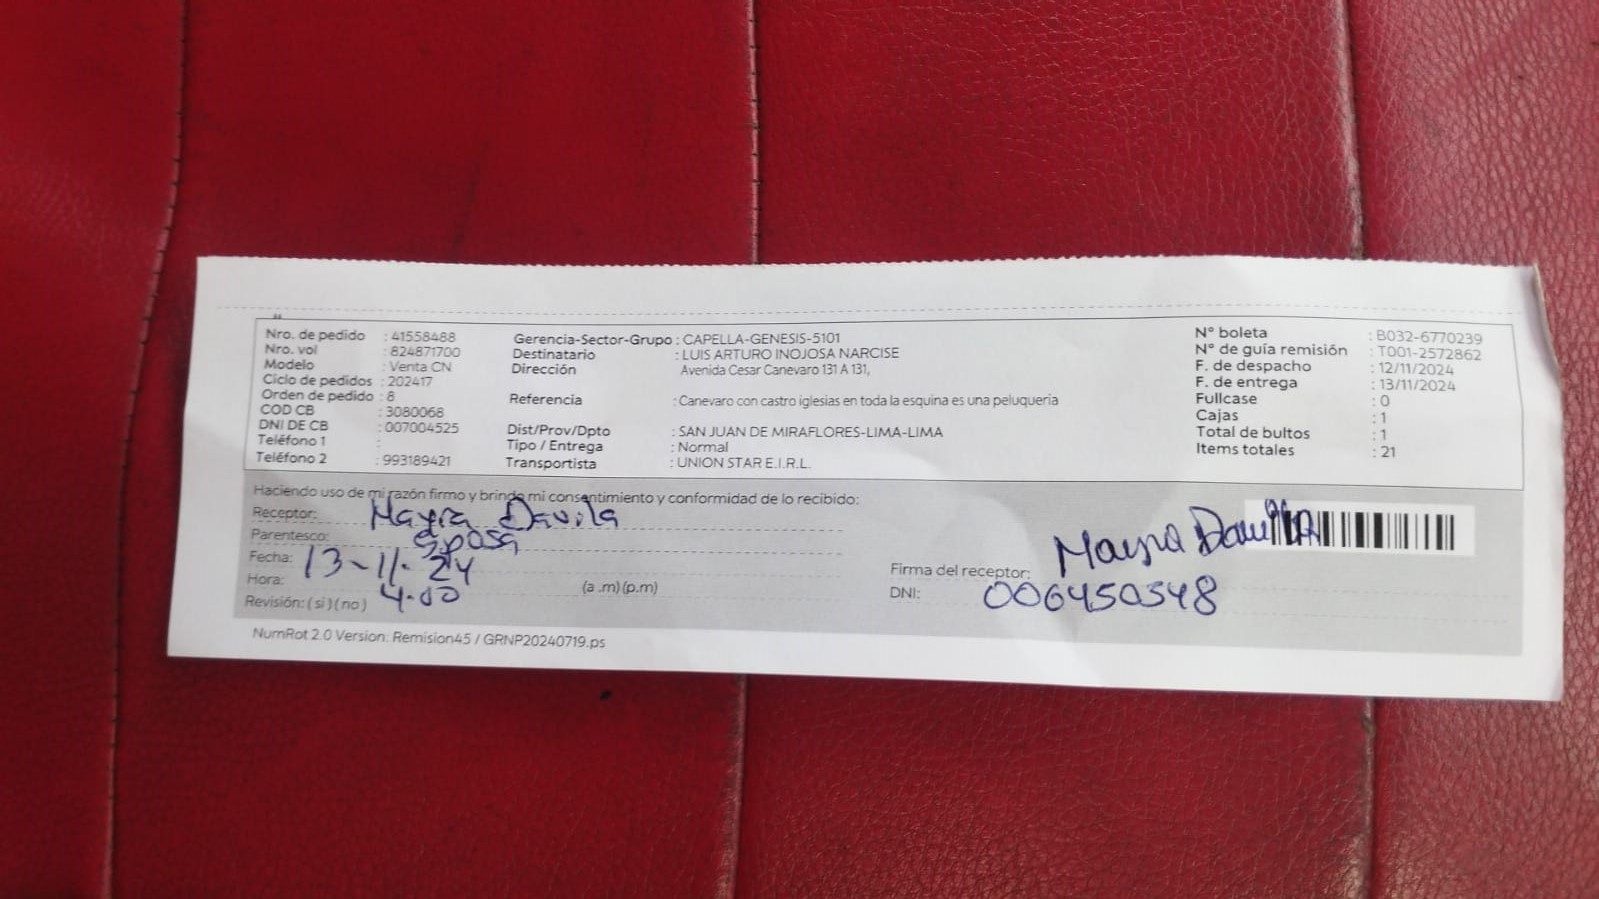 Nro. de pedido : 41558488
Nro. vol : 824871700
Modelo : Venta CN
Ciclo de pedidos : 202417
Orden de pedido : 8
COD CB : 3080068
DNI DE CB : 007004525
Teléfono 1 :
Teléfono 2 : 993189421
Gerencia-Sector-Grupo : CAPELLA-GENESIS-5101
Destinatario : LUIS ARTURO INOJOSA NARCISE
Dirección Avenida Cesar Canevaro 131 A 131,
Referencia : Canevaro con castro iglesias en toda la esquina es una peluqueria
Dist/Prov/Dpto : SAN JUAN DE MIRAFLORES-LIMA-LIMA
Tipo / Entrega : Normal
Transportista : UNION STAR E.I.R.L.
N° boleta : B032-6770239
N° de guía remisión : T001-2572862
F. de despacho : 12/11/2024
F. de entrega : 13/11/2024
Fullcase : 0
Cajas : 1
Total de bultos : 1
Items totales : 21
Haciendo uso de mi razón firmo y brindo mi consentimiento y conformidad de lo recibido:
Receptor: Mayra Davila
Parentesco: Esposa
Fecha: 13-11-24
Hora: 4.00 (a .m)(p.m)
Revisión: ( si ) ( no )
Firma del receptor: Mayra Davila
DNI: 006450548
NumRot 2.0 Version: Remision45 / GRNP20240719.ps